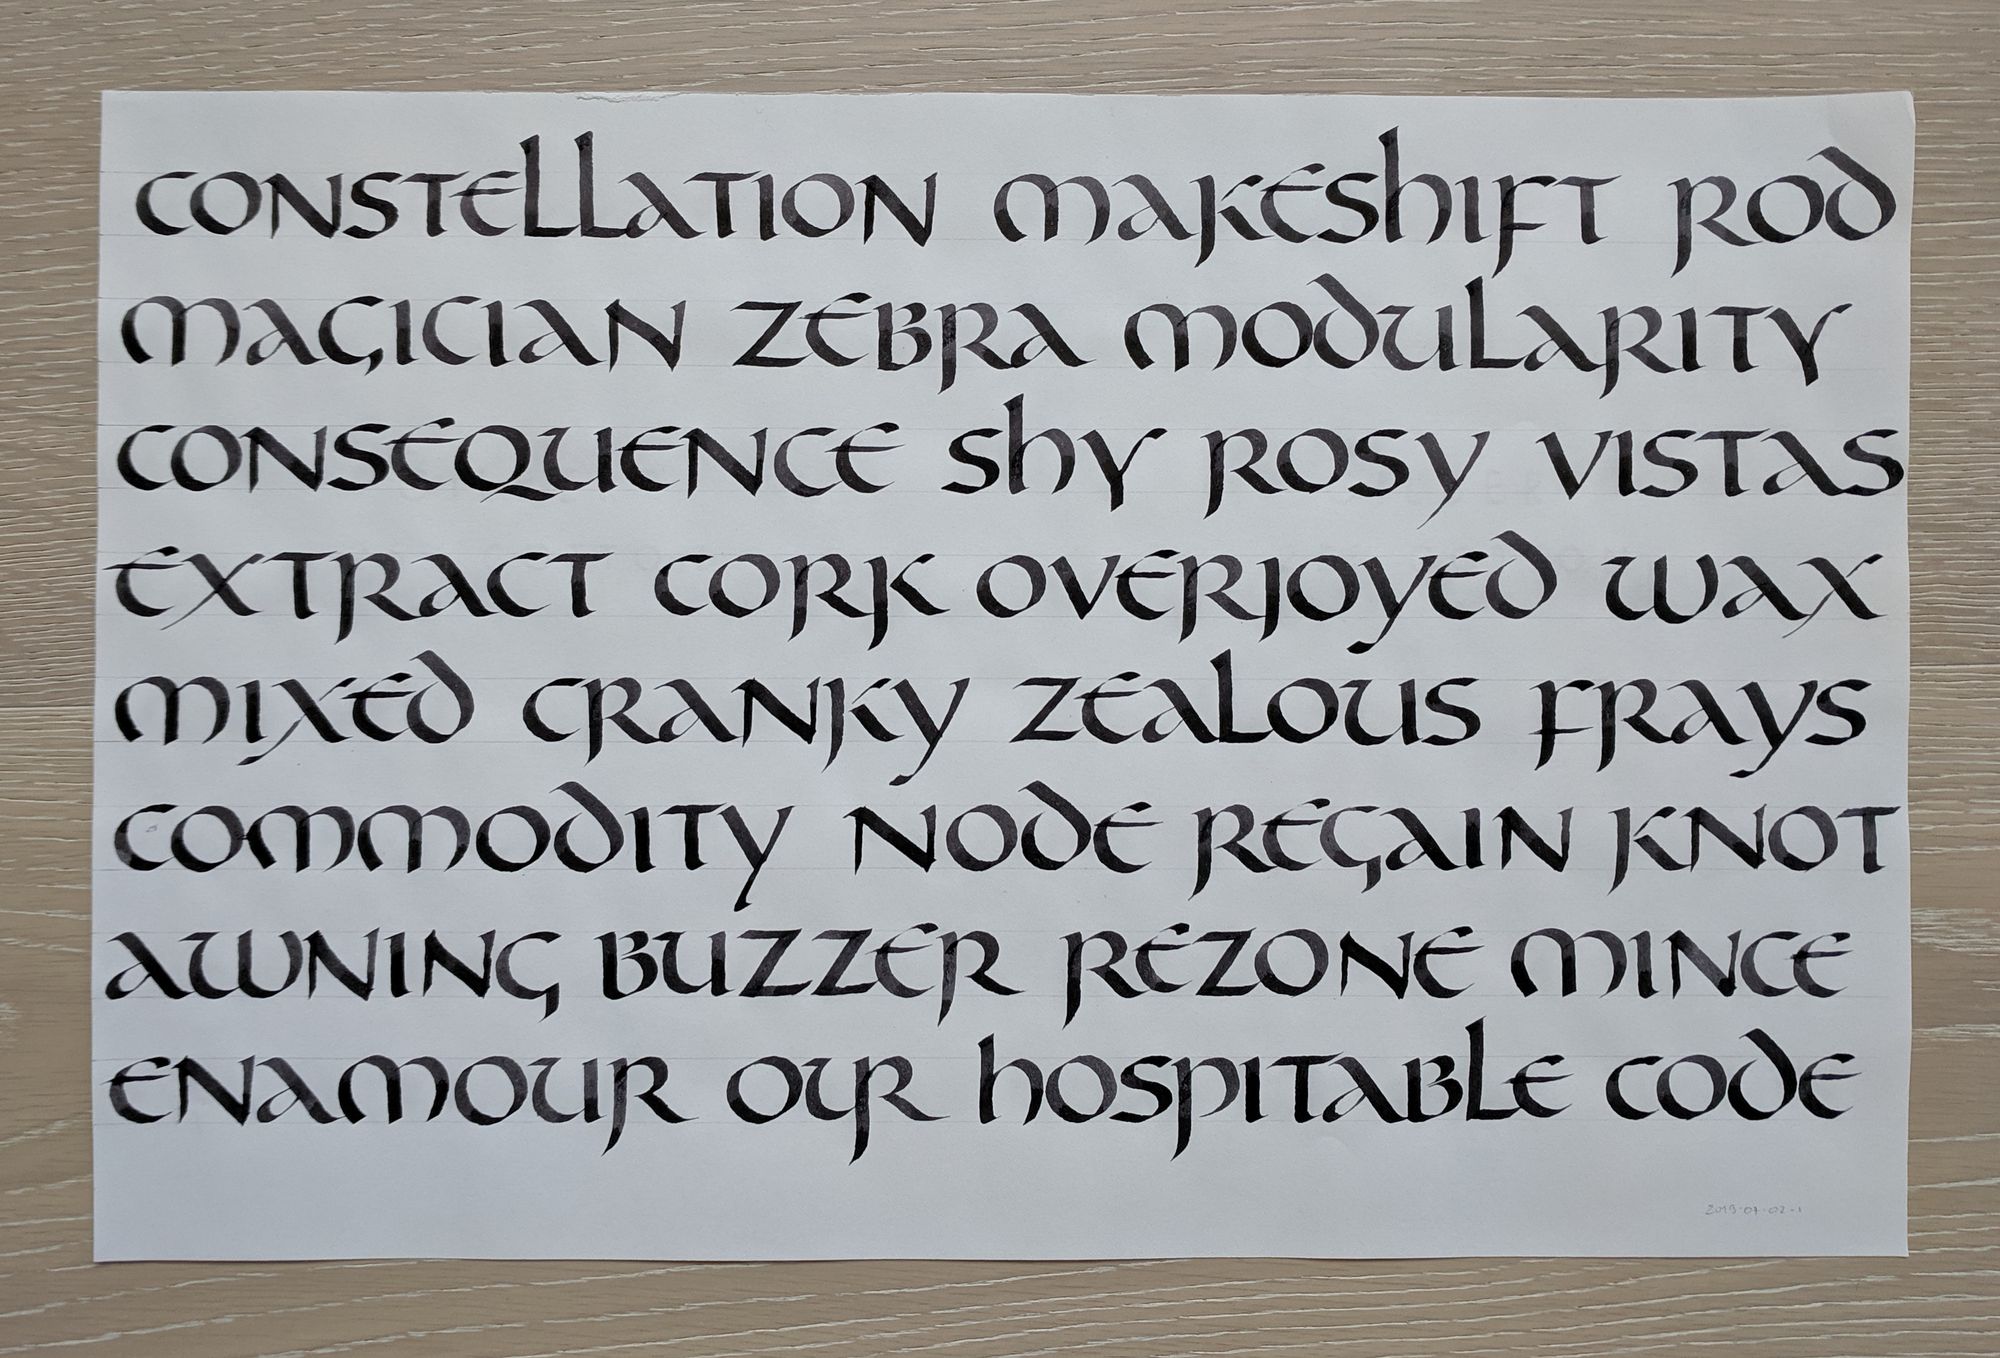 CONSTELLATION MAKESHIFT ROD
MAGICIAN ZEBRA MODULARITY
CONSEQUENCE SHY ROSY VISTAS
EXTRACT CORK OVERJOYED WAX
MIXED CRANKY ZEALOUS FRAYS
COMMODITY NODE REGAIN KNOT
AWNING BUZZER REZONE MINCE
ENAMOUR OUR HOSPITABLE CODE
2019-07-02-1